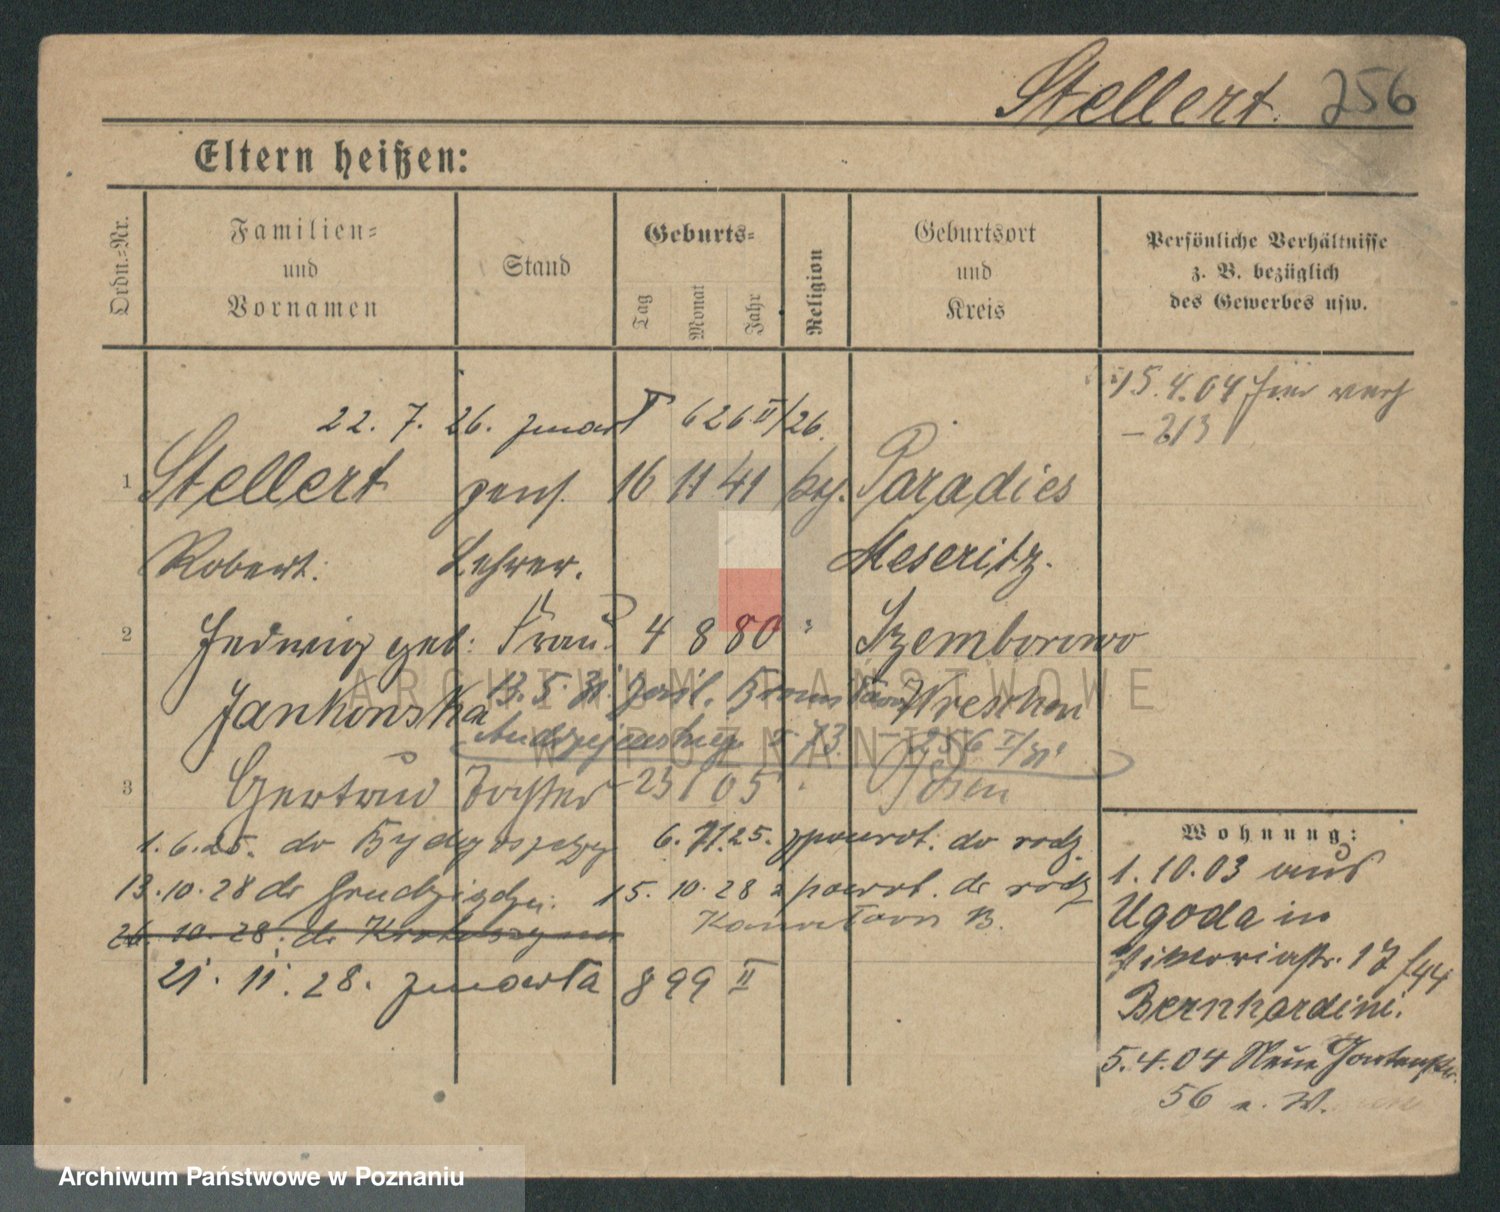 Stellert. 256
Eltern heißen:
Ordn.-Nr.
Familien- und Vornamen
Stand
Geburts-
Tag
Monat
Jahr
Religion
Geburtsort und Kreis
Persönliche Verhältnisse z. B. bezüglich des Gewerbes usw.
15.4.04 hier
- 213
22. 7. 26. zmarł 626 II/26.
1 Stellert pens. 16 11 41 Paradies
Robert. Lehrer. Meseritz.
2 Hedwig geb: Frau. 4 8 80 " Szemborowo
Jankowska Wreschen
13. 5.
256 I/31
3 Gertrud Tochter 23 1 05 Posen
1.6.25. do Bydgoszczy 6. 11.25. zpowrot. do rodz.
13.10.28 do Grudziądza. 15. 10. 28 z powrot. do rodz
26. 10. 28. do Krotoszyna
21. 11. 28. zmarła 899 II
Wohnung:
1.10.03 aus
Ugoda in
Viktoriastr. 17
Bernhardini.
5.4.04 Neue Gartenstr.
56
ARCHIWUM PAŃSTWOWE
W POZNANIU
Archiwum Państwowe w Poznaniu